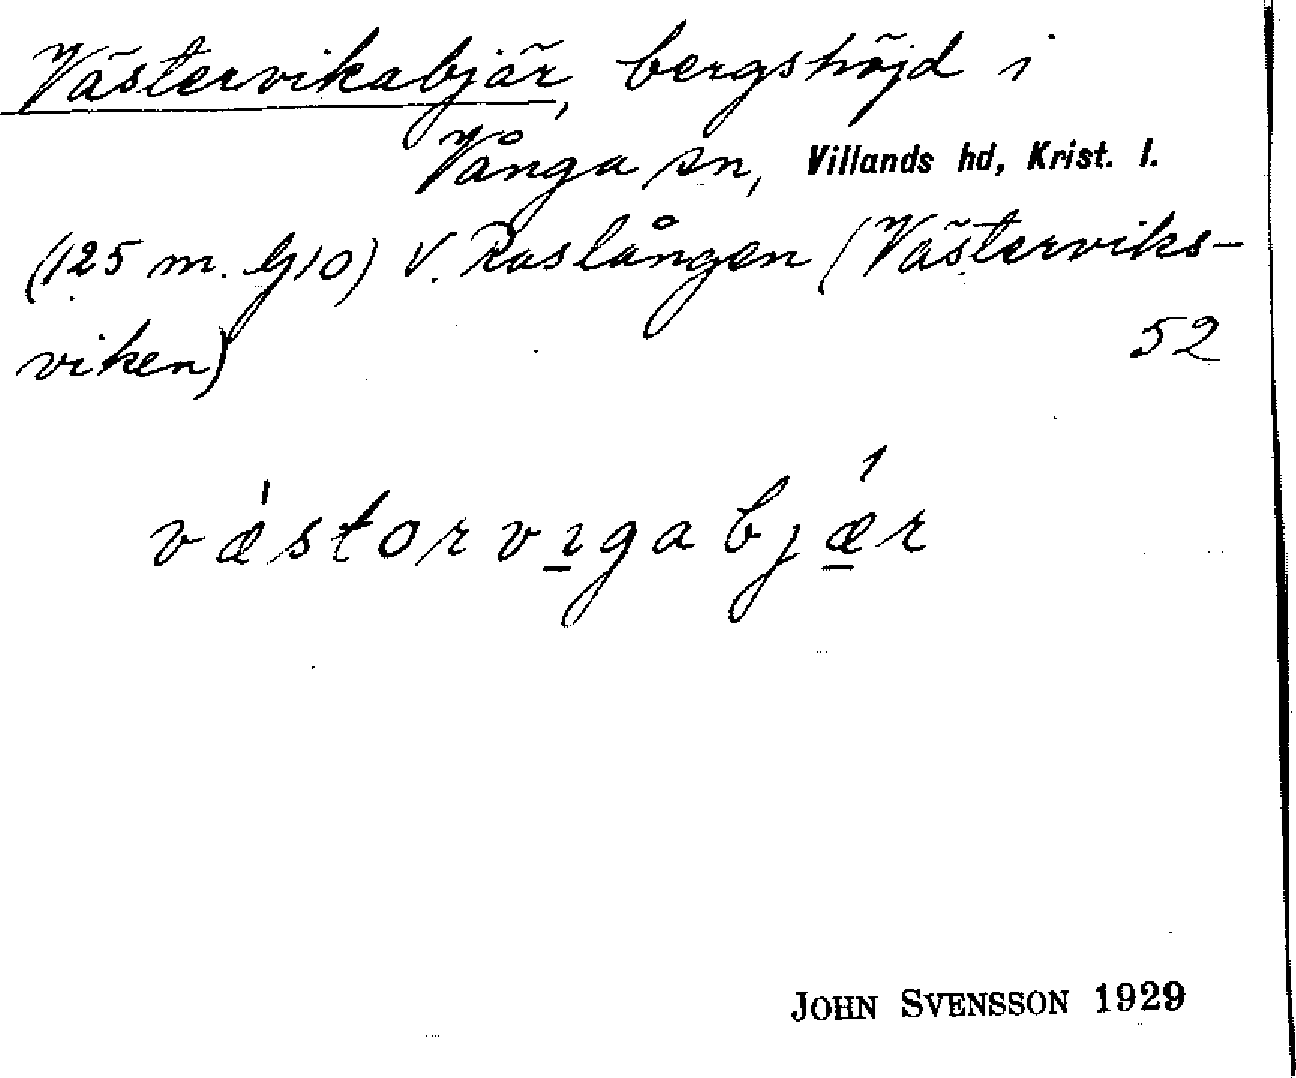 Västervikabjär, bergshöjd i
Vånga sn, Villands hd, Krist. l.
(125 m. G10) V. Raslången (Västerviks-
viken)
52
vǽstorvıgabjǽr
JOHN SVENSSON 1929